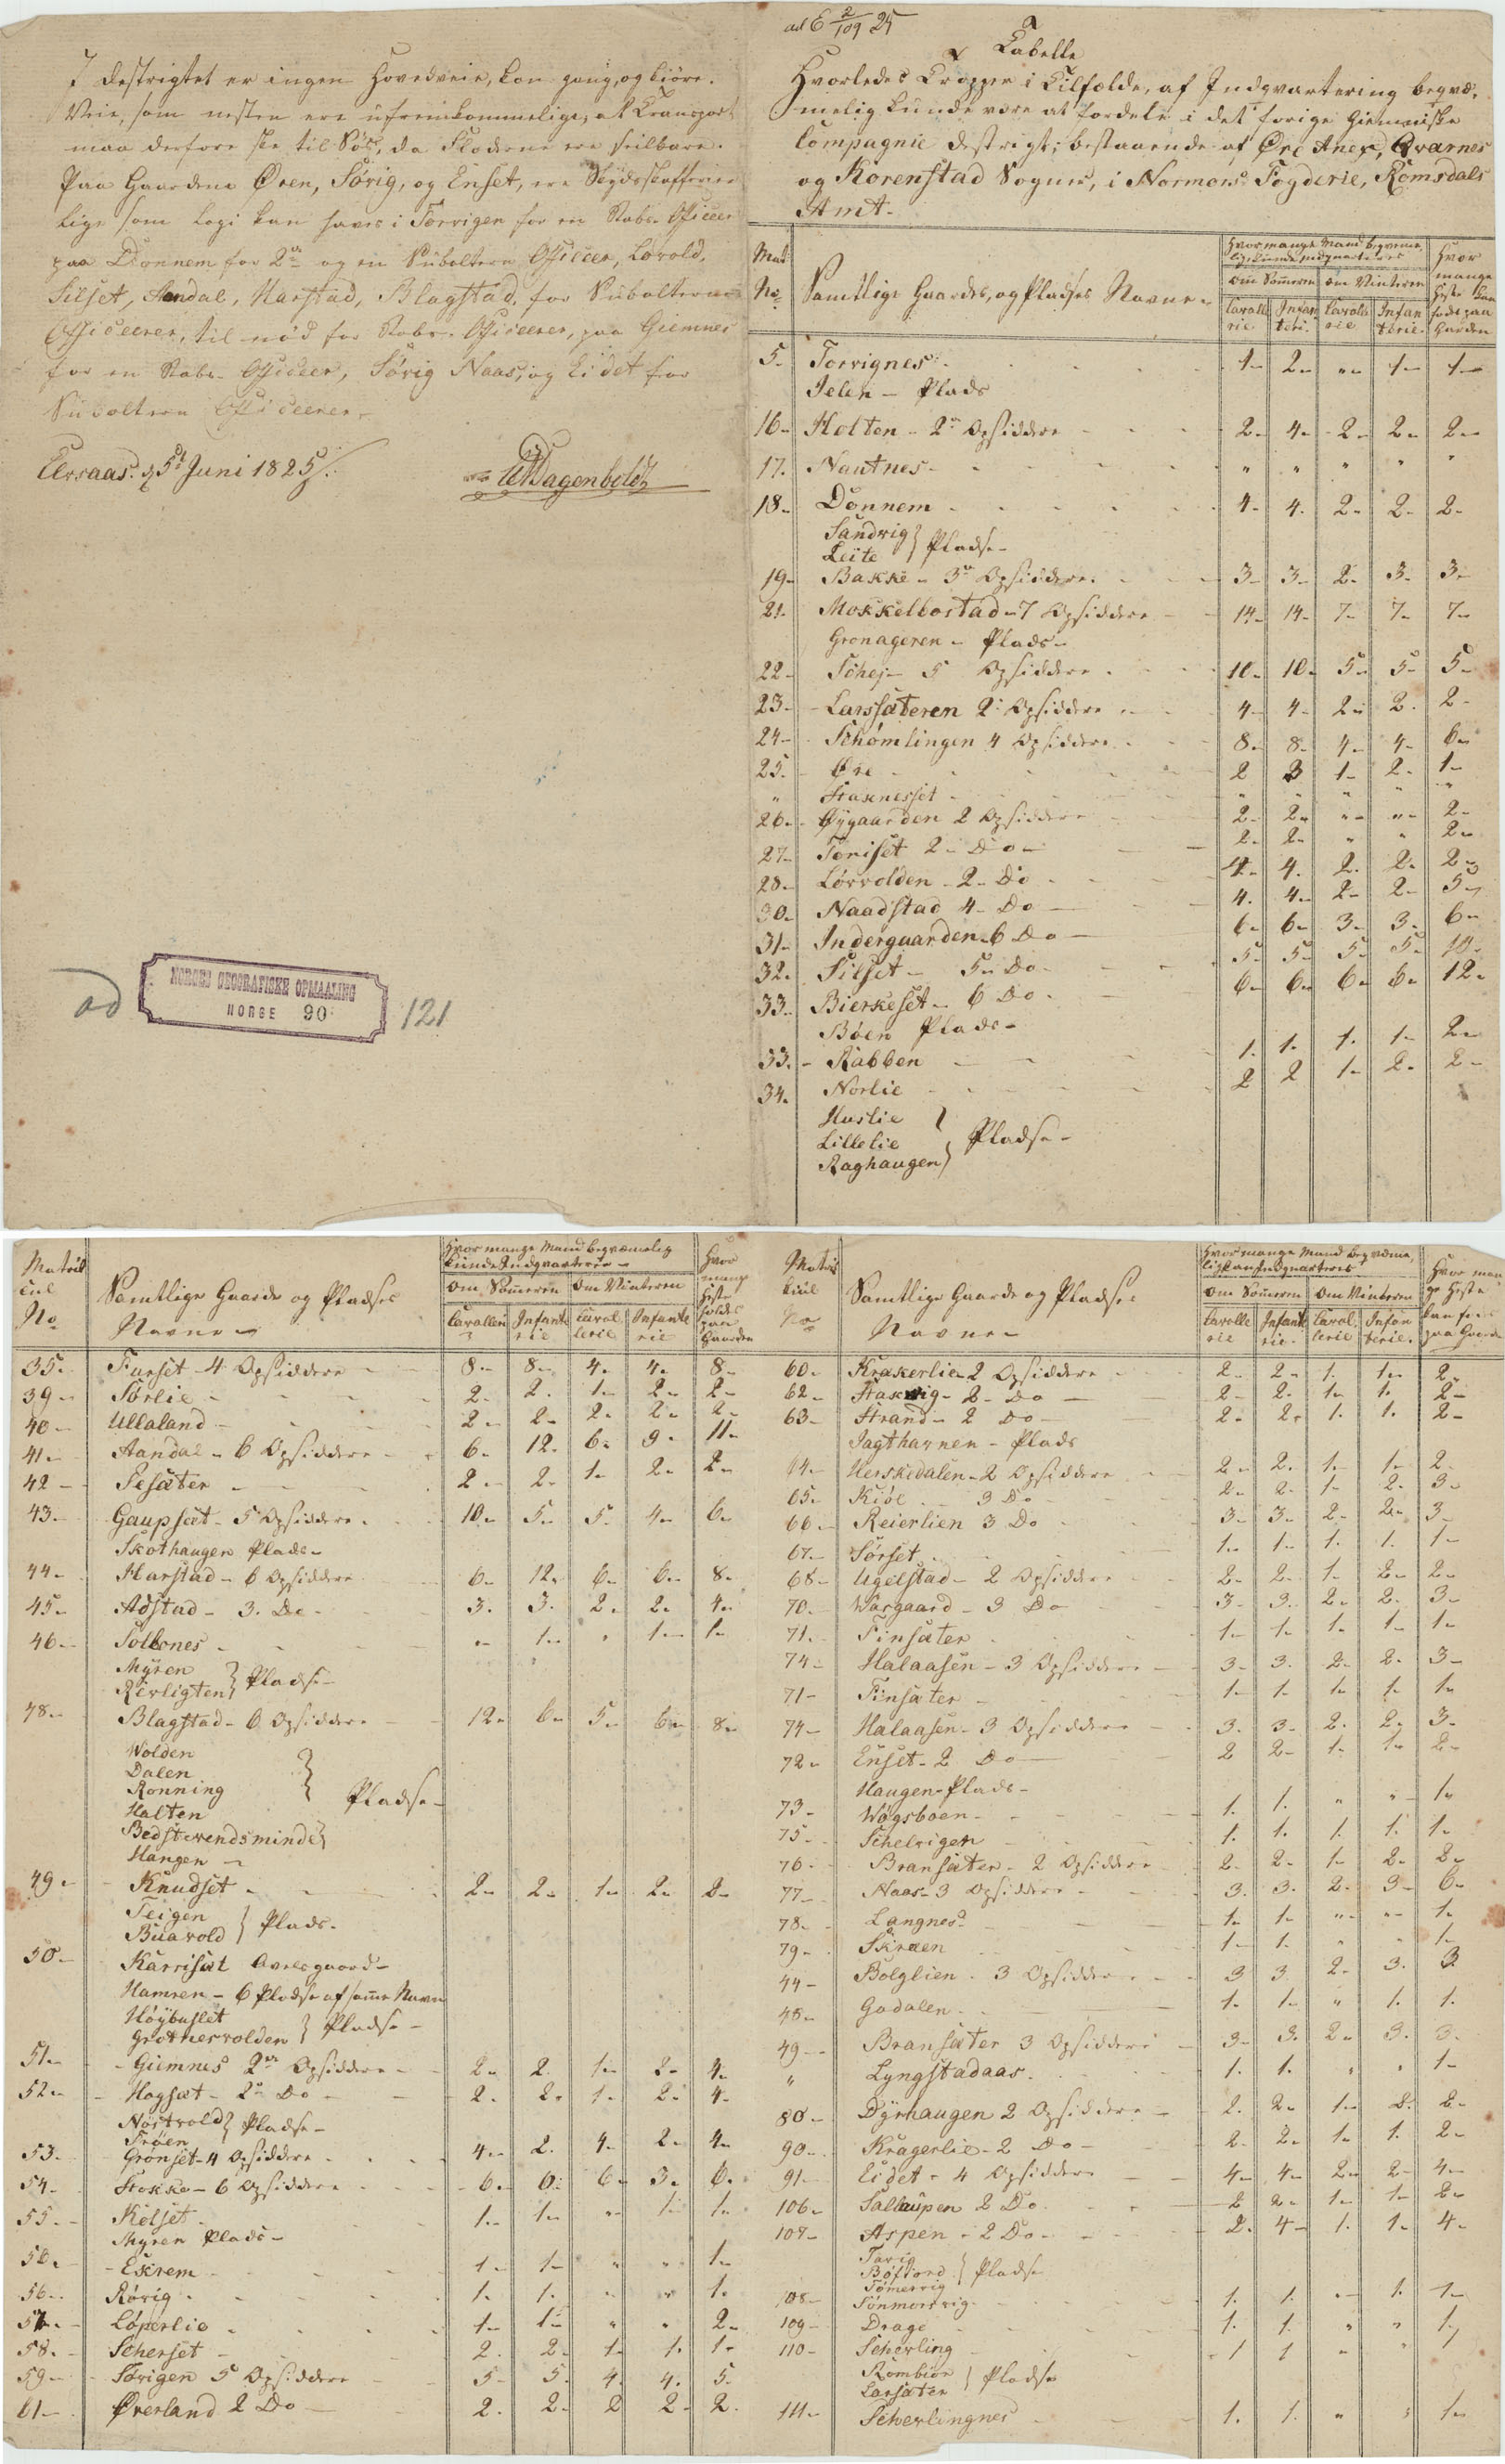 I destrigtet er ingen Hovedveie, kon gang, og kiöre.
Veie, som nesten ere ufremkommelige, al Transport
maa derfore ske til Söes, da Fiodene ere seilbare.
Paa Gaardene Øren, Sörig, og Enset, ere Skydsskafferier
lige som Logi kan haves i Torvigen for en Stabs Officeer
paa Donnem for 2de og en Subaltern Officeer, Lørvold,
Silset, Aandal, Harstad, Blagstad, for Subalterne
Officeerer, til nöd for Stabs Officeerer, paa Giemnes
for en Stabs Officeer, Sörig Naas, og Eidet for
Subaltern Officeerer.
d. 5t Juni 1825
ad
NORGES GEOGRAFISKE OPMAALING
NORGE 90
121
ad E 2/109 25
Tabelle
Hvorledes Tropper i Tilfælde, af Indqvartering beqvæ-
melig kunde være at fordele i det forige Giemniske
Compagnie destrigt; bestaaende af Øre Anex, Qvarnes
og Korenstad Sogne, i Normørs Fogderie, Romsdals
Amt.
Mat No
Samtlige Gaardes, og Pladses Navne
Hvormange Mand beqveme-
lig kunde indqvarteres
Om Sommeren Om Vinteren
Cavallerie Infanterie Cavallerie Infanterie
Hvor mange Heste kan fodes paa Garden
5 Torvignes 1 2 " 1 1
Jelen Plads
16 Holten 2de Opsiddere 2 4 2 2 2
17 Nautnes " " " " "
18 Donnem 4 4 2 2 2
Sandvig
Leite } Pladse
19 Bakke 3de Opsiddere 3 3 2 3 3
21 Mokkelbostad 7 Opsiddere 14 14 7 7 7
Gronageren Plads
22 Schej 5 Opsiddere 10 10 5 5 5
23 Larssæteren 2 Opsiddere 4 4 2 2 2
24 Schømlingen 4 Opsiddere 8 8 4 4 6
25 Øre 2 3 1 2 1
" Staknesset " " " " "
26 Øygaarden 2 Opsiddere 2 2 " " 2
27 Toniset 2 Do 2 2 " " 2
28 Lørvolden 2 Do 4 4 2 2 2
30 Naadstad 4 Do 4 4 2 2 5
31 Indergaarden 6 Do 6 6 3 3 6
32 Silset 5 Do 5 5 5 5 10
33 Bierkeset 6 Do 6 6 6 6 12
Böen Plads
33 Rabben 1 1 1 1 2
34 Norlie 2 2 1 2 2
Huslie
Lillelie
Raghaugen } Pladse
Matricul No
Samtlige Gaarde og Pladses
Navne
Hvor mange Mand beqvemelig
kunde Indqvarteres
Om Sommeren Om Vinteren
Cavallerie Infanterie Cavallerie Infanterie
Hvor mange Heste fodes paa Gaarden
35 Furset 4 Opsiddere 8 8 4 4 8
39 Sørlie 2 2 1 2 2
40 Ullaland 2 2 2 2 2
41 Aandal 6 Opsiddere 6 12 6 9 11
42 Sesæter 2 2 1 2 2
43 Gaupsæt 5 Opsiddere 10 5 5 4 6
Skothaugen Plads
44 Harstad 6 Opsiddere 6 12 6 6 8
45 Adstad 3 Do 3 3 2 2 4
46 Solbones " 1 " 1 1
Myren
Revligten } Pladse
48 Blagstad 6 Opsiddere 12 6 5 6 8
Wolden
Dalen
Ronning
Halten
Bedstevendsminde
Haugen
Pladse
49 Knudset 2 2 1 2 2
Teigen
Buavold } Plads
50 Karrisæt Avelsgaard
Hamren 6 Pladse af samme Navn
Höybuslet
Grothesvolden } Pladse
51 Giemnes 2de Opsiddere 2 2 1 2 4
52 Hogsæt 2de Do 2 2 1 2 4
Nöstvold
Tröen } Pladse
53 Grönset 4 Opsiddere 4 2 4 2 4
54 Stokke 6 Opsiddere 6 6 6 3 6
55 Kelset 1 1 " 1 1
Myren Plads
56 Eskrem 1 1 " " 1
56 Rörig 1 1 " " 1
57 Löperlie 1 1 " " 2
58 Scherset 2 2 1 1 1
59 Sørigen 5 Opsiddere 5 5 4 4 5
61 Øverland 2 Do 2 2 2 2 2
Matricul No
Samtlige Gaarde og Pladses
Navne
Hvor mange Mand beqveme-
lig kan Indqvarteres
Om Sommeren Om Vinteren
Cavallerie Infanterie Cavallerie Infanterie
Hvor mange Heste kan föes paa Gaarden
60 Krakerlie 2 Opsiddere 2 2 1 1 2
62 Stakvig 2 Do 2 2 1 1 2
63 Strand 2 Do 2 2 1 1 2
Jagthavnen Plads
64 Herskedalen 2 Opsiddere 2 2 1 1 2
65 Kiöl 3 Do 2 2 1 2 3
66 Reierlien 3 Do 3 3 2 2 3
67 Sörset 1 1 1 1 1
68 Ugelstad 2 Opsiddere 2 2 1 2 2
70 Wargaard 3 Do 3 3 2 2 3
71 Finsæter 1 1 1 1 1
74 Halaasen 3 Opsiddere 3 3 2 2 3
71 Finsæter 1 1 1 1 1
74 Halaasen 3 Opsiddere 3 3 2 2 3
72 Enset 2 Do 2 2 1 1 2
Haugen Plads
73 Wogsboen 1 1 " " 1
75 Schelvigen 1 1 1 1 1
76 Bransæter 2 Opsiddere 2 2 1 2 2
77 Naas 3 Opsiddere 3 3 2 3 6
78 Langnes 1 1 " " 1
79 Skraen 1 1 " " 1
44 Bolglien 3 Opsiddere 3 3 2 3 3
48 Gadalen 1 1 " 1 1
49 Bransæter 3 Opsiddere 3 3 2 3 3
" Lyngstadaas 1 1 " " 1
80 Dyrhaugen 2 Opsiddere 2 2 1 2 2
90 Kragerlie 2 Do 2 2 1 1 2
91 Eidet 4 Opsiddere 4 4 2 2 4
106 Saltkupen 2 Do 2 2 1 1 2
107 Aspen 2 Do 2 4 1 1 4
Tarig
Böfiord } Pladse
Tömervig
108 Sönmorsvig 1 1 " 1 1
109 Drage 1 1 " " 1
110 Scherling 1 1 " " 1
Rombion
Larsæter } Pladse
111 Scherlingnes 1 1 " " 1